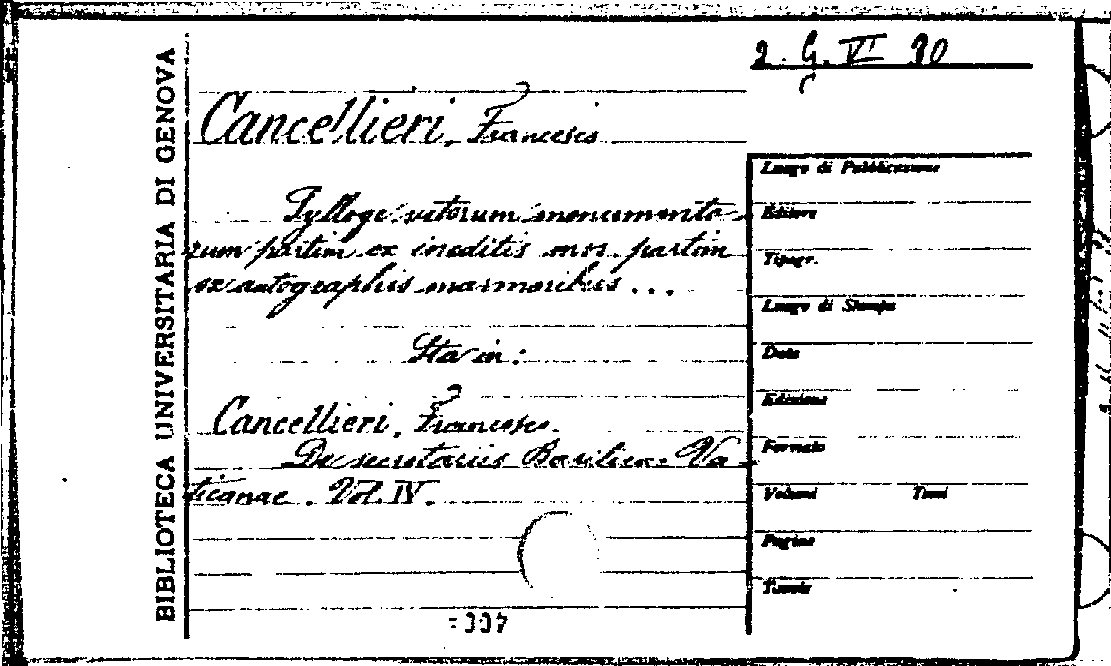 BIBLIOTECA UNIVERSITARIA DI GENOVA
2. G. VI 30
Cancellieri, Francesco
Sylloge veterum monumento-
rum partim ex ineditis mss. partim
ex autographis marmoribus...
Sta in:
Cancellieri, Francesco.
De secretariis Basilicae Va-
ticanae. Vol. IV.
Luogo di Pubblicazione
Editore
Tipogr.
Luogo di Stampa
Data
Edizione
Formato
Volumi Tomi
Pagine
Tavole